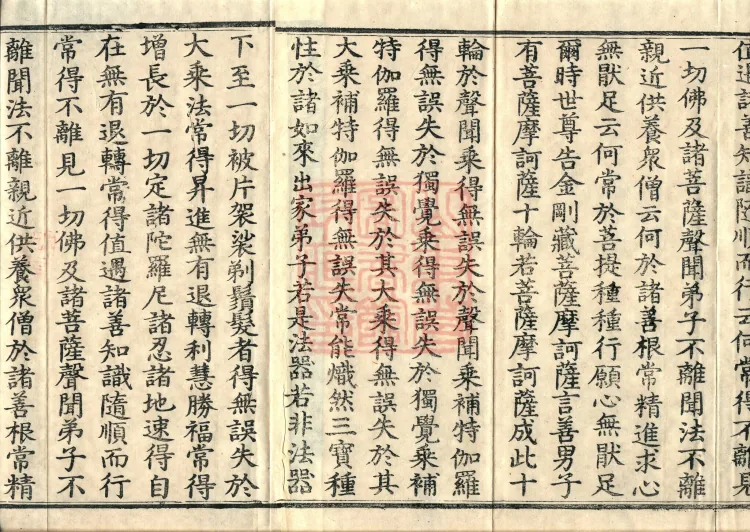 值遇諸善知識隨順而行云何常得不離見
一切佛及諸菩薩聲聞弟子不離聞法不離
親近供養衆僧云何於諸善根常精進求心
無猒足云何常於菩提種種行願心無猒足
爾時世尊告金剛藏菩薩摩訶薩言善男子
有菩薩摩訶薩十輪若菩薩摩訶薩成此十
輪於聲聞乘得無誤失於聲聞乘補特伽羅
得無誤失於獨覺乘得無誤失於獨覺乘補
特伽羅得無誤失於其大乘得無誤失於其
大乘補特伽羅得無誤失常能熾然三寶種
性於諸如來出家弟子若是法器若非法器
下至一切被片袈裟剃鬚髮者得無誤失於
大乘法常得昇進無有退轉利慧勝福常得
增長於一切定諸陀羅尼諸忍諸地速得自
在無有退轉常得值遇諸善知識隨順而行
常得不離見一切佛及諸菩薩聲聞弟子不
離聞法不離親近供養衆僧於諸善根常精